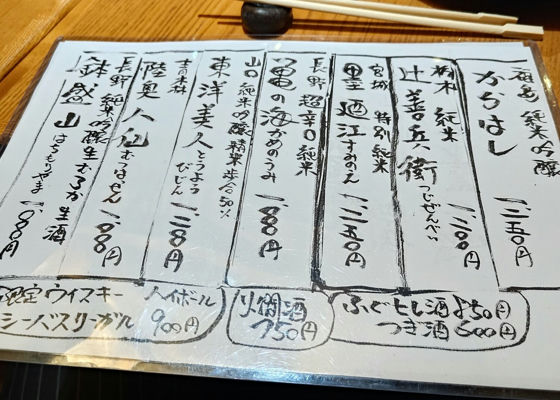 福島 純米吟醸
かちはし 一、二五〇円
栃木 純米
辻善兵衛 つじぜんべい 一、一三〇円
宮城 特別純米
墨廼江 すみのえ 一、二五〇円
長野 超辛口純米
亀の海 かめのうみ 一、一〇〇円
山口 純米吟醸 精米歩合50%
東洋美人 とうようびじん 一、二〇〇円
青森
陸奥八仙 むつはっせん 一、一〇〇円
長野 純米吟醸生むろか生酒
鉢盛山 はちもりやま 一、一〇〇円
ふぐヒレ酒 850円
つぎ酒 600円
750円
限定ウイスキー ハイボール
シーバスリーガル 900円